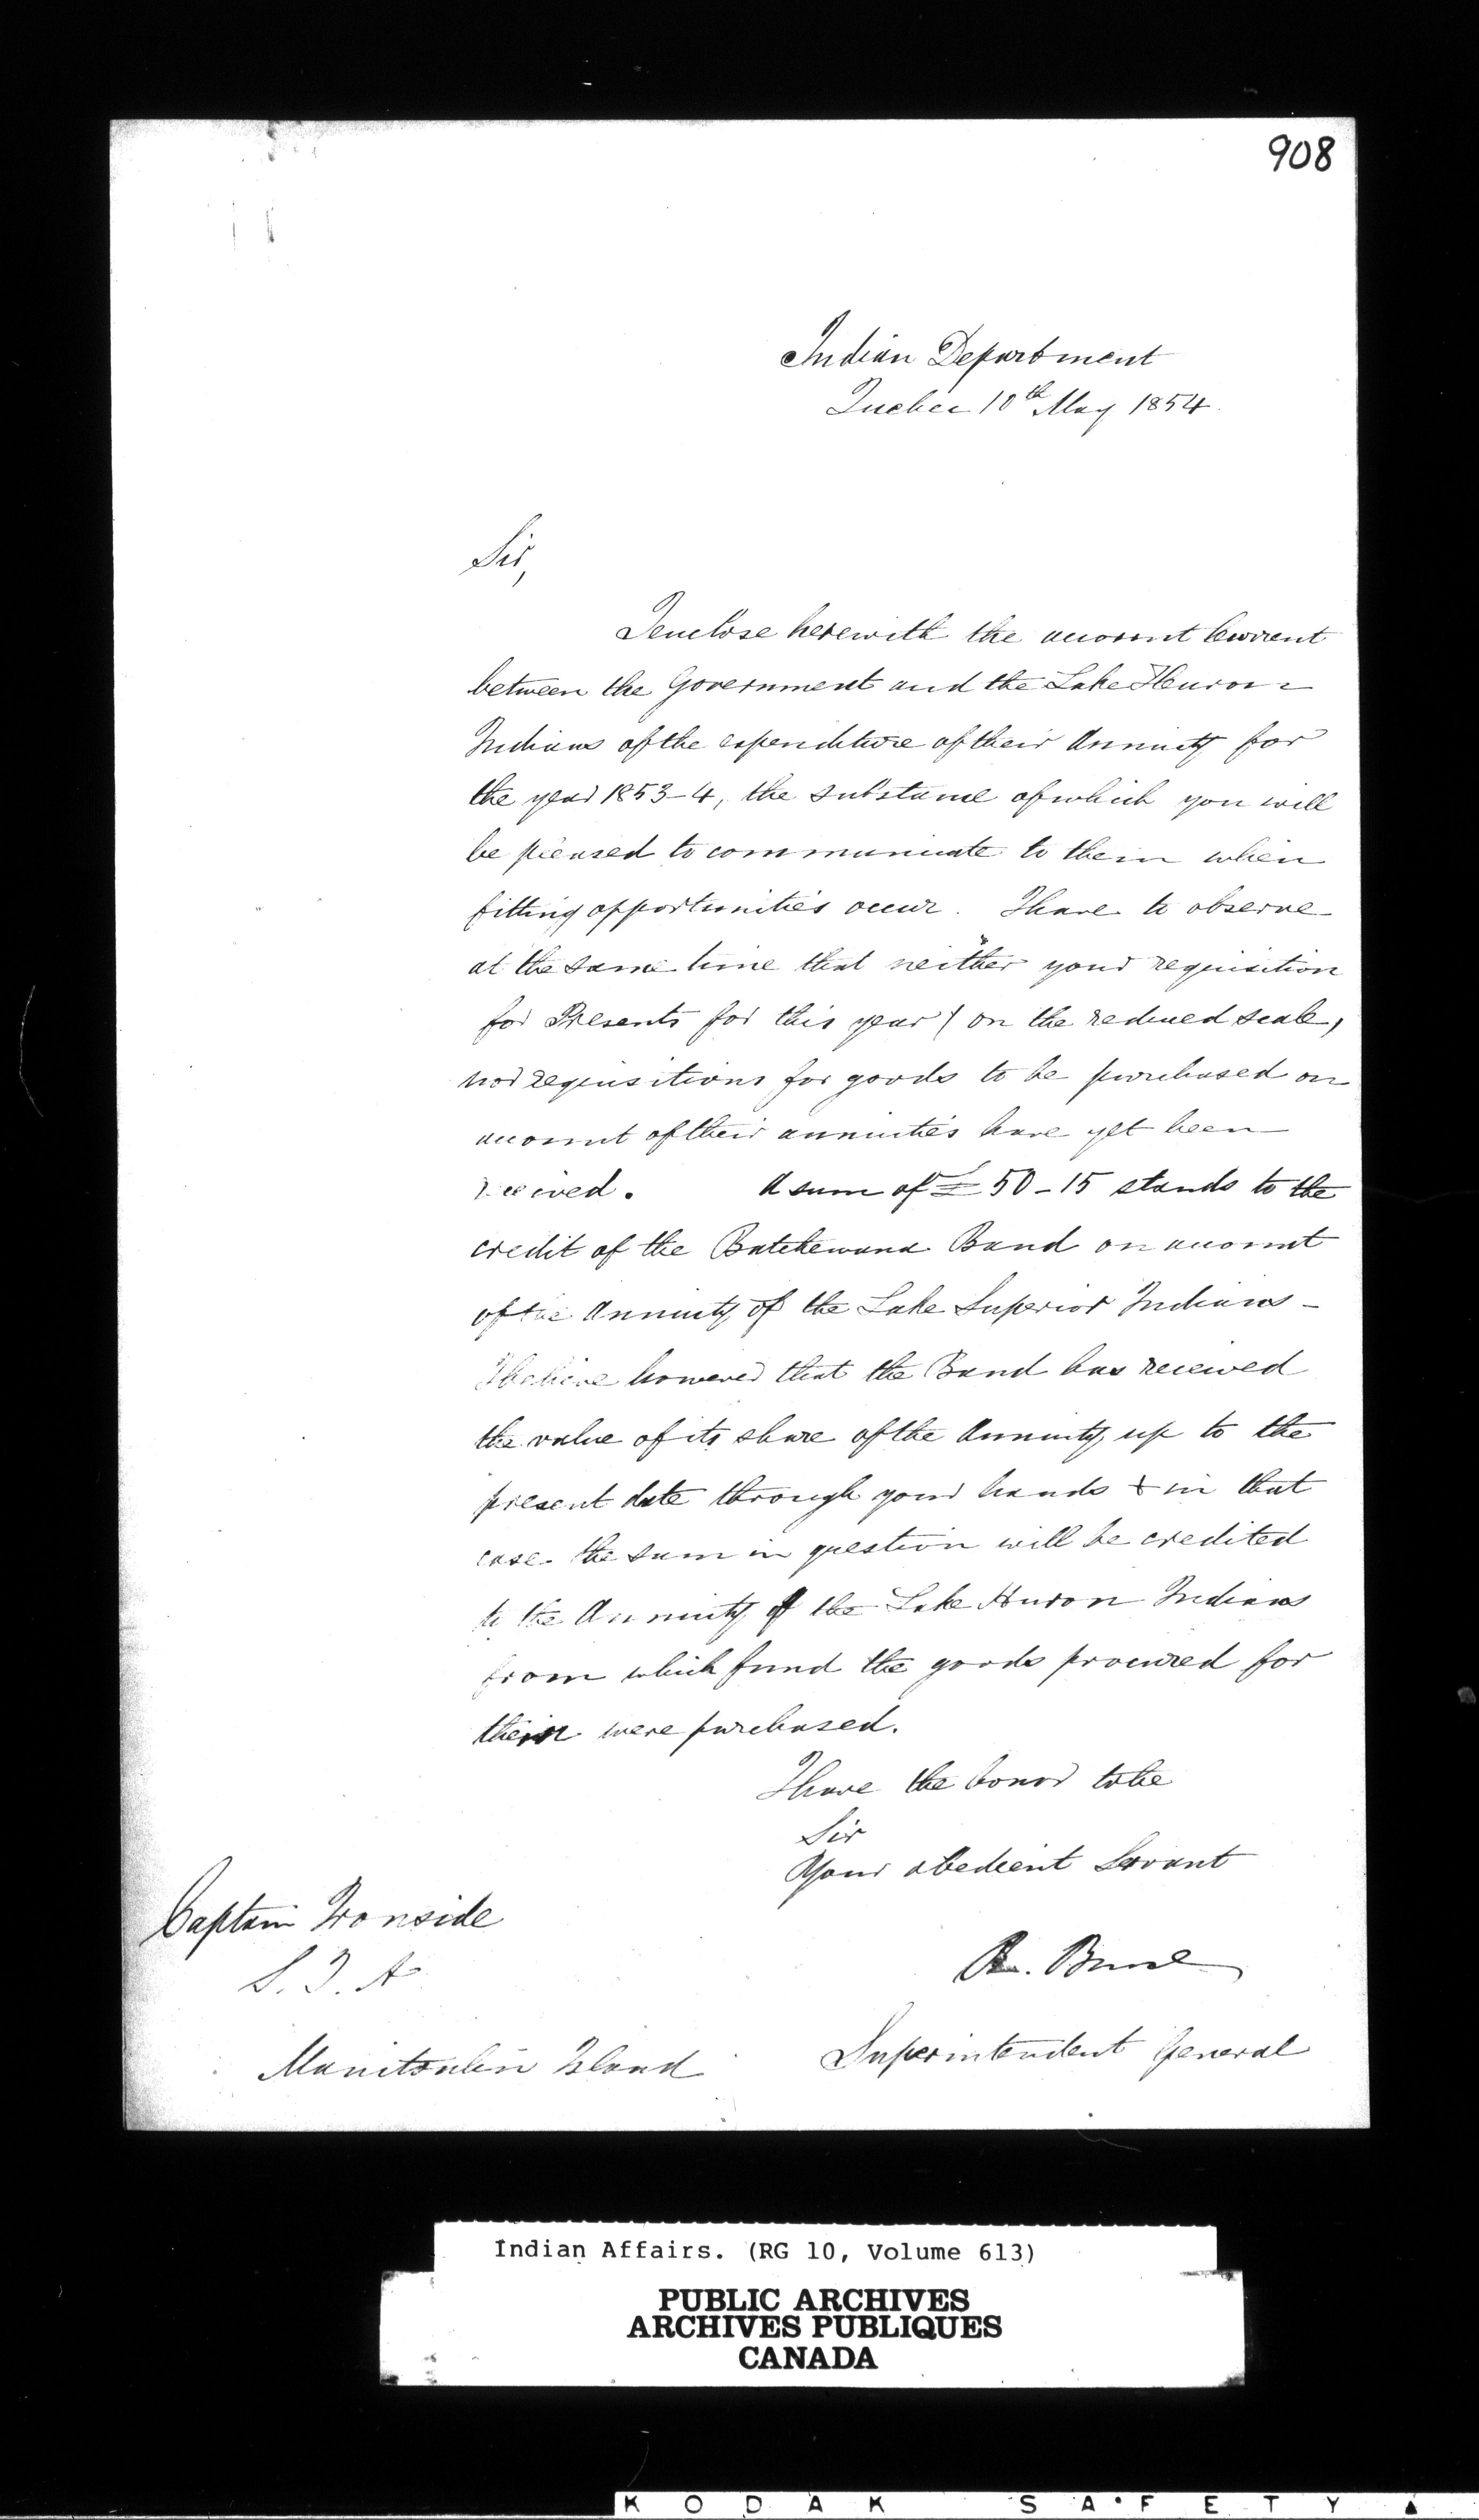 908
Indian Department
Quebec 10th May 1854.
Sir,
I enclose herewith the account Current
between the Government and the Lake Huron
Indians of the expenditure of their Annuity for
the year 1853-4, the substance of which you will
be pleased to communicate to them when
fitting opportunities occur. I have to observe
at the same time that neither your requisition
for Presents for this year (on the reduced scale,
nor requisitions for goods to be purchased on
account of their annuities have yet been
received. A sum of £50-15 stands to the
credit of the Batchewana Band on account
of the Annuity of the Lake Superior Indians -
I believe however that the Band has received
the value of its share of the Annuity up to the
present date through your hands & in that
case the sum in question will be credited
to the Annuity of the Lake Huron Indians
from which fund the goods procured for
them were purchased.
I have the honor to be
Sir
Your obedient Servant
R. Bruce
Superintendent General
Captain Ironside
S. I. A
Manitoulin Island
Indian Affairs. (RG 10, Volume 613)
PUBLIC ARCHIVES
ARCHIVES PUBLIQUES
CANADA
KODAK SAFETY